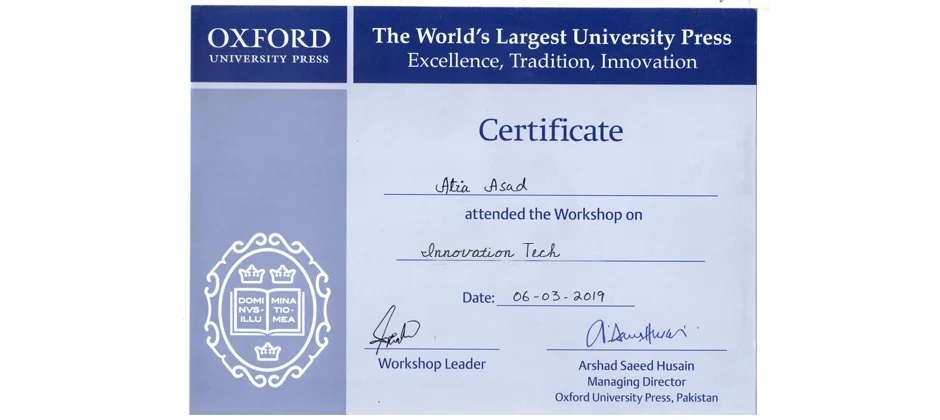 OXFORD
UNIVERSITY PRESS
The World's Largest University Press
Excellence, Tradition, Innovation
Certificate
Atia Asad
attended the Workshop on
Innovation Tech
Date: 06-03-2019
DOMI MINA
NVS· TIO·
ILLU MEA
Workshop Leader
Arshad Saeed Husain
Managing Director
Oxford University Press, Pakistan